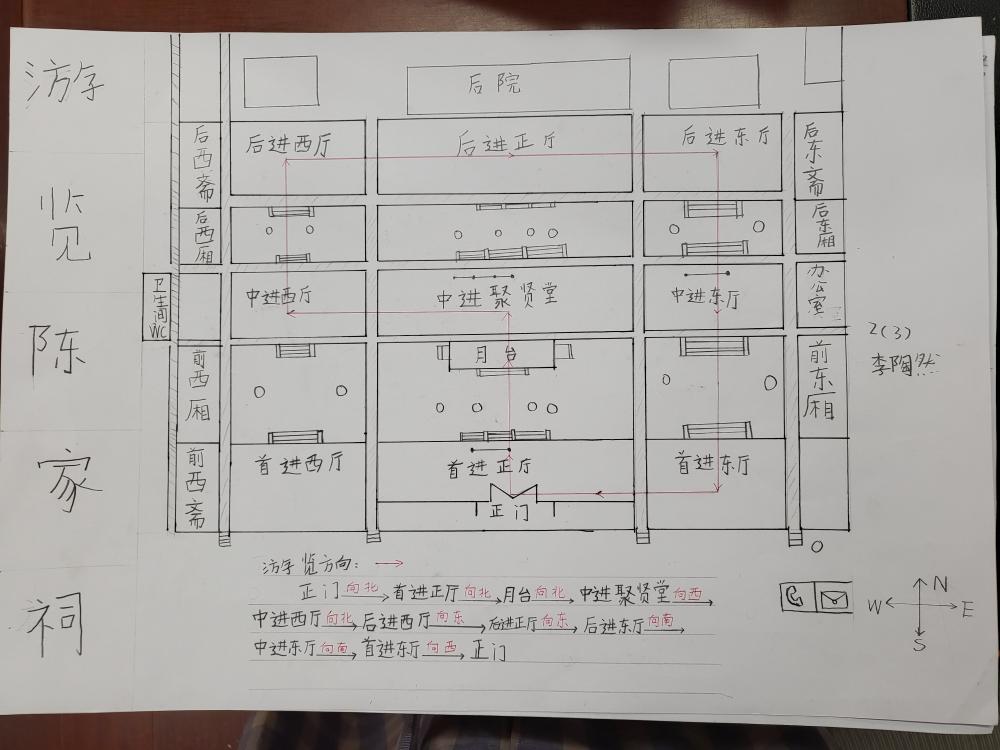 游览陈家祠
后院
后西斋
后进西厅
后进正厅
后进东厅
后东斋
后西厢
后东厢
卫生间WC
中进西厅
中进聚贤堂
中进东厅
办公室
前西厢
月台
前东厢
2(3)
李陶然
前西斋
首进西厅
首进正厅
首进东厅
正门
游览方向:→
正门向北→首进正厅向北→月台向北→中进聚贤堂向西→
中进西厅向北→后进西厅向东→后进正厅向东→后进东厅向南→
中进东厅向南→首进东厅向西→正门
N
W
E
S